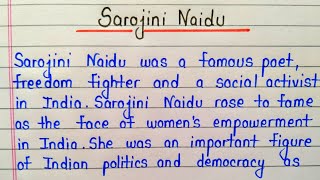 Sarojini Naidu
Sarojini Naidu was a famous poet,
freedom fighter and a social activist
in India. Sarojini Naidu rose to fame
as the face of women's empowerment
in India. She was an important figure
of Indian politics and democracy as